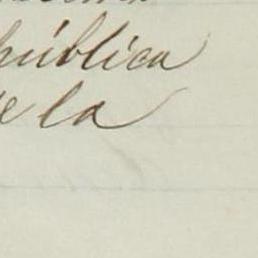 pública
de la